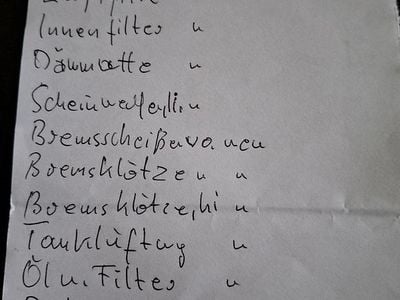 Innenfilter "
Dämmatte "
Scheinwerfer li. "
Bremsscheiße vo. neu
Bremsklötze " "
Bremsklötze, hi "
Tanklüftung "
Öl u. Filter "